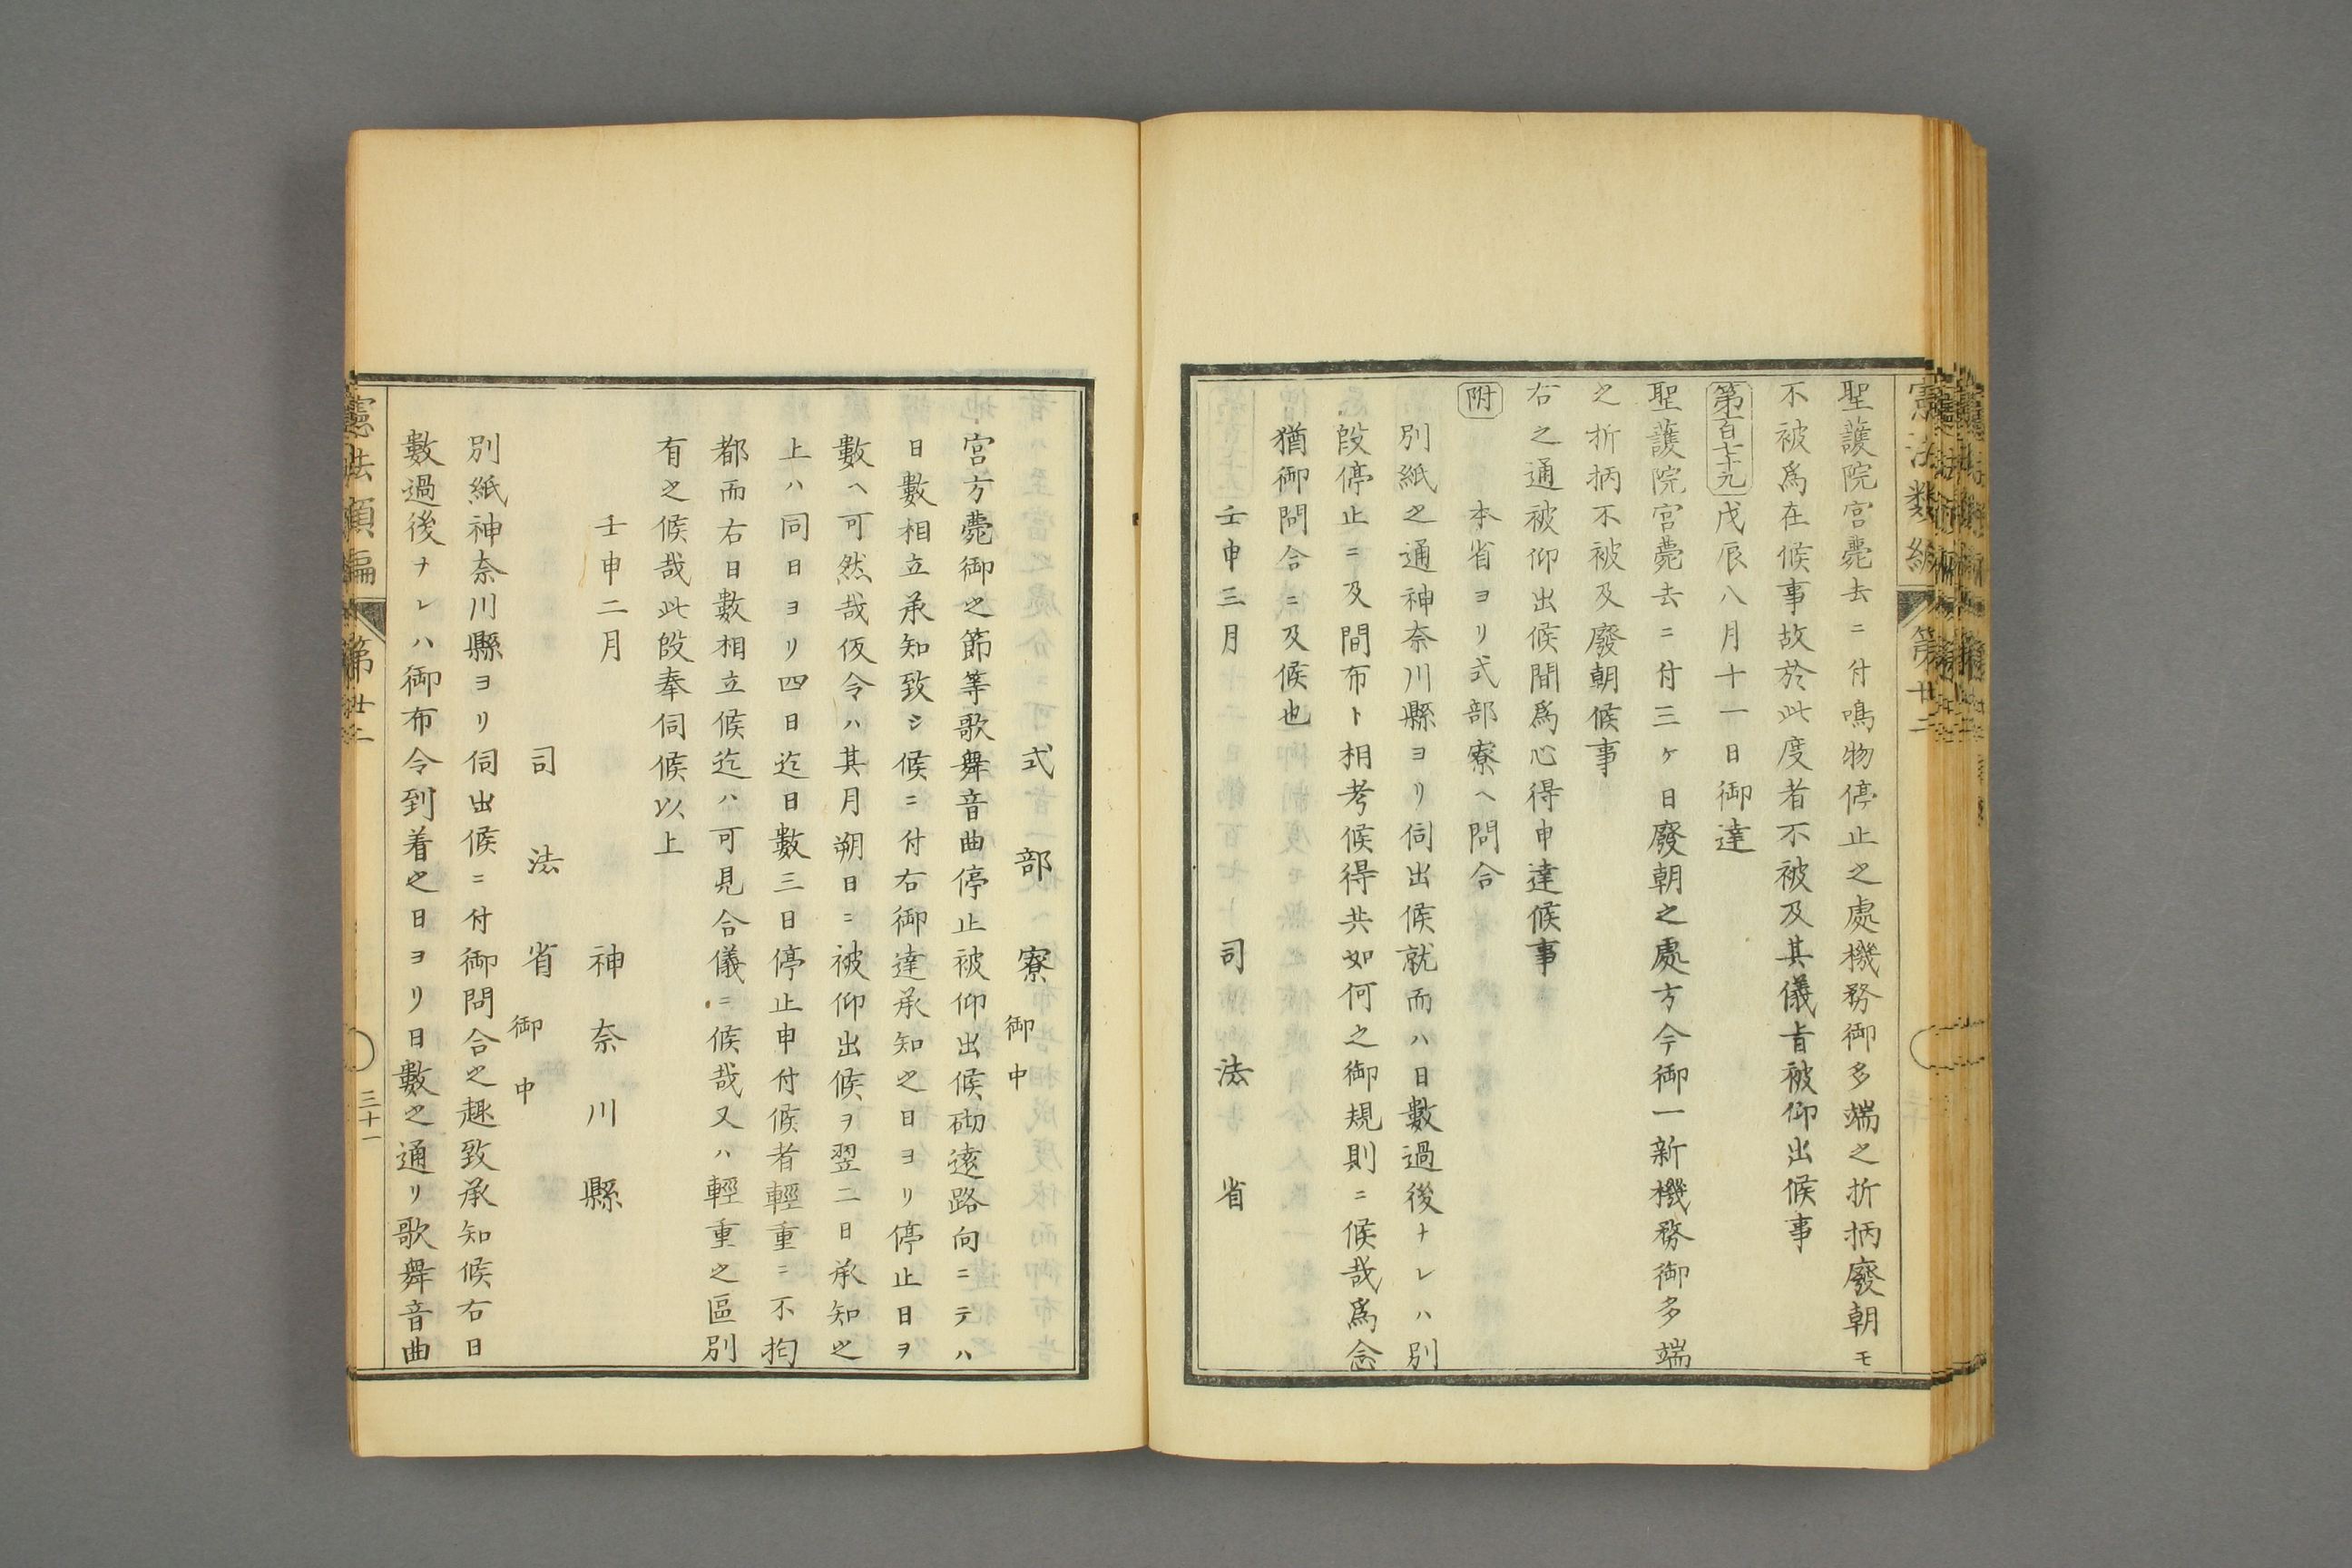 聖護院宮薨去ニ付鳴物停止之處機務御多端之折柄廢朝モ
不被爲在候事故於此度者不被及其儀㫖被仰出候事
第百七十九 戊辰八月十一日御達
聖護院宮薨去ニ付三ヶ日廢朝之處方今御一新機務御多端
之折柄不被及廢朝候事
右之通被仰出候間爲心得申達候事
附
本省ヨリ式部寮ヘ問合
別紙之通神奈川縣ヨリ伺出候就而ハ日數過後ナレハ別
段停止ニ及間布ト相考候得共如何之御規則ニ候哉爲念
猶御問合ニ及候也
壬申三月 司法省
式部寮御中
宮方薨御之節等歌舞音曲停止被仰出候砌遠路向ニテハ
日數相立承知致シ候ニ付右御達承知之日ヨリ停止日ヲ
數ヘ可然哉仮令ハ其月朔日ニ被仰出候ヲ翌二日承知之
上ハ同日ヨリ四日迄日數三日停止申付候者輕重ニ不拘
都而右日數相立候迄ハ可見合儀ニ候哉又ハ輕重之區別
有之候哉此段奉伺候以上
壬申二月
神奈川縣
司法省御中
別紙神奈川縣ヨリ伺出候ニ付御問合之趣致承知候右日
數過後ナレハ御布令到着之日ヨリ日數之通リ歌舞音曲
憲法類編 第廿二
三十一